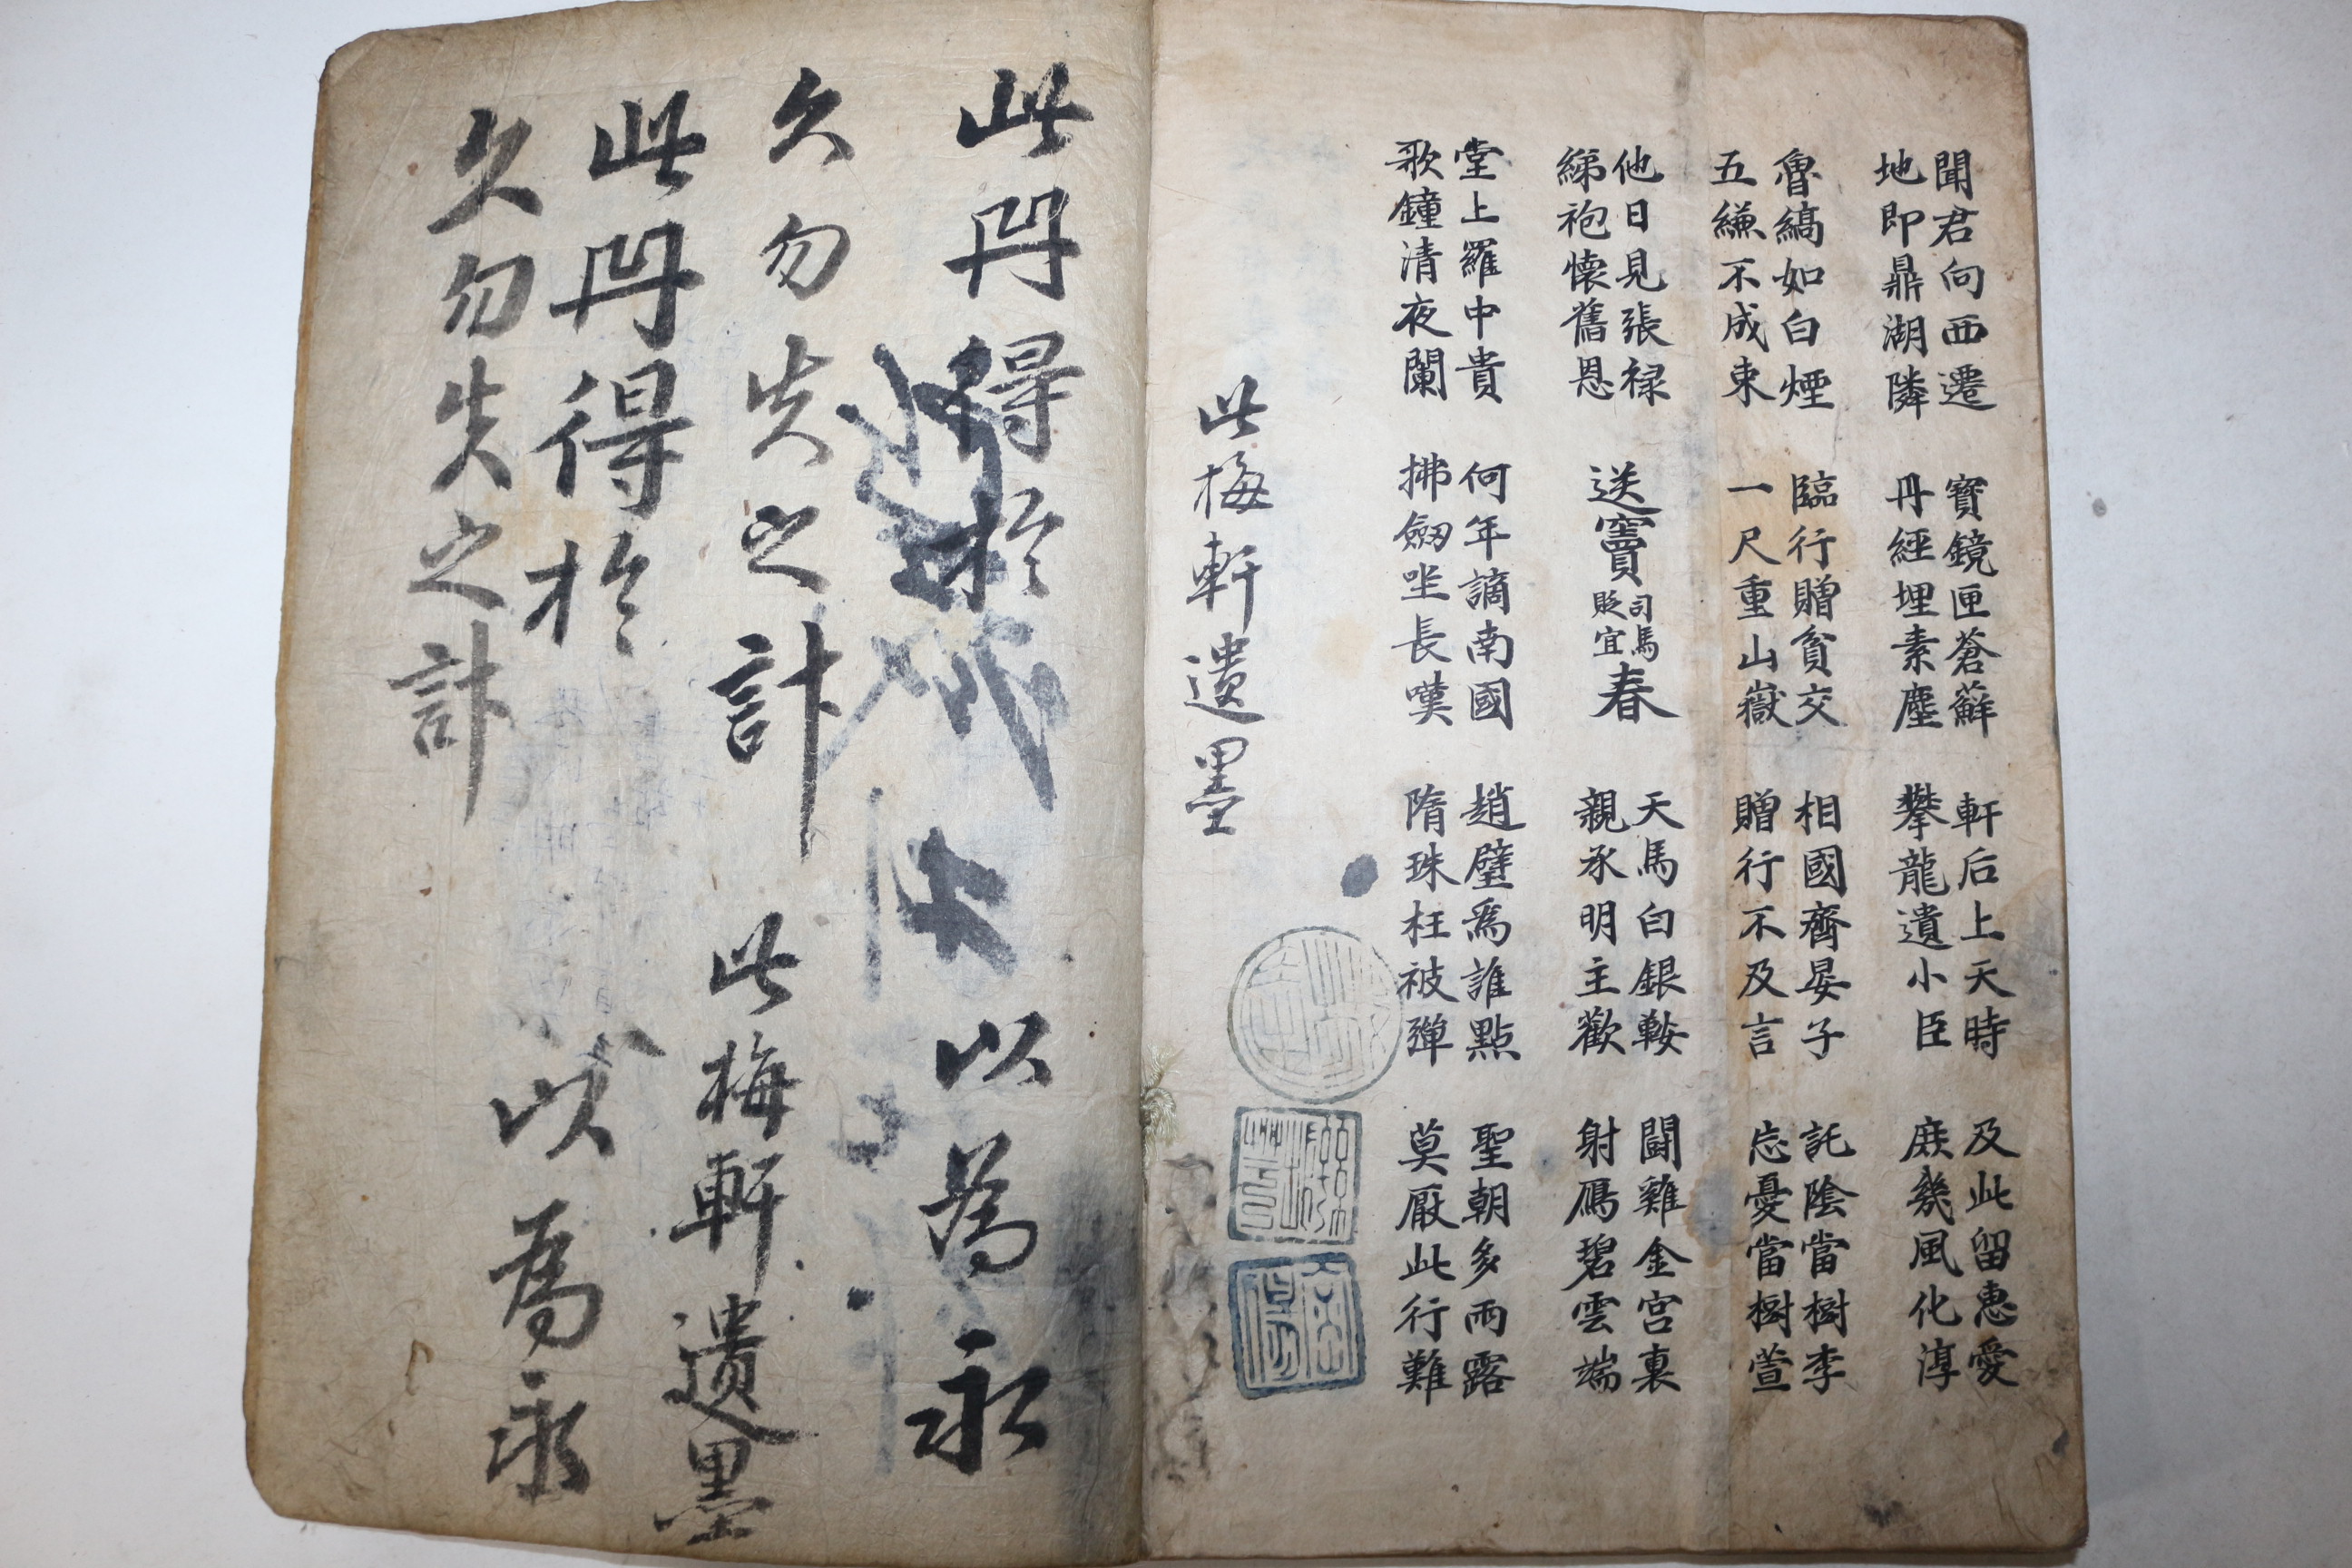 聞君向西遷
地即鼎湖隣
寶鏡匣蒼蘚
丹經埋素塵
軒后上天時
攀龍遺小臣
及此留惠愛
庶幾風化淳
魯縞如白煙
五縑不成束
臨行贈貧交
一尺重山嶽
相國齊晏子
贈行不及言
託陰當樹李
忘憂當樹萱
他日見張祿
綈袍懷舊恩
送竇司馬貶宜春
天馬白銀鞍
親承明主歡
鬪雞金宮裏
射鴈碧雲端
堂上羅中貴
歌鐘清夜闌
何年謫南國
拂劒坐長嘆
趙璧爲誰點
隋珠枉被彈
聖朝多雨露
莫厭此行難
此梅軒遺墨
此冊得於以爲永
久勿失之計
此梅軒遺墨
此冊得於以爲永
久勿失之計